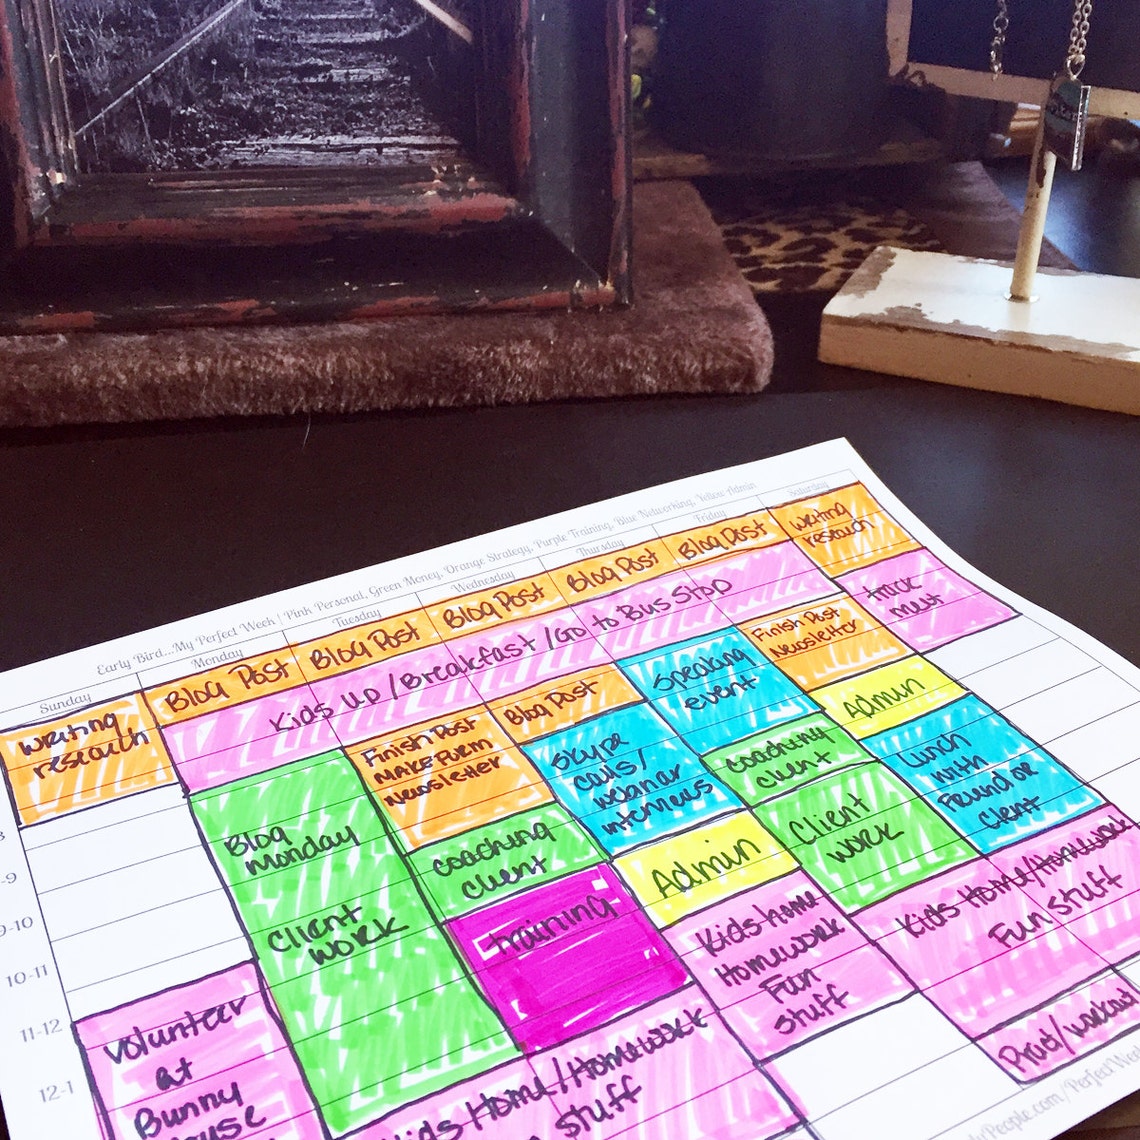 Early Bird...My Perfect Week | Pink Personal, Green Money, Orange Strategy, Purple Training, Blue Networking, Yellow Admin
Sunday
Monday
Tuesday
Wednesday
Thursday
Friday
Saturday
writing
research
Blog Post
Blog Post
Blog Post
Blog Post
Blog Post
writing
research
Kids up / Breakfast / Go to Bus Stop
track
meet
Blog
monday
Client
work
Finish Post
Newsletter
coaching
client
training
Blog Post
Skype
calls/
webinar
interviews
Admin
Kids home
Homework
Fun
stuff
Speaking
event
coaching
client
Client
work
Finish Post
Newsletter
Admin
Lunch
with
Friend or
Client
Kids Home/Homework
Fun stuff
Kids Home / Homework
stuff
volunteer
at
Bunny
8
-9
9-10
10-11
11-12
12-1